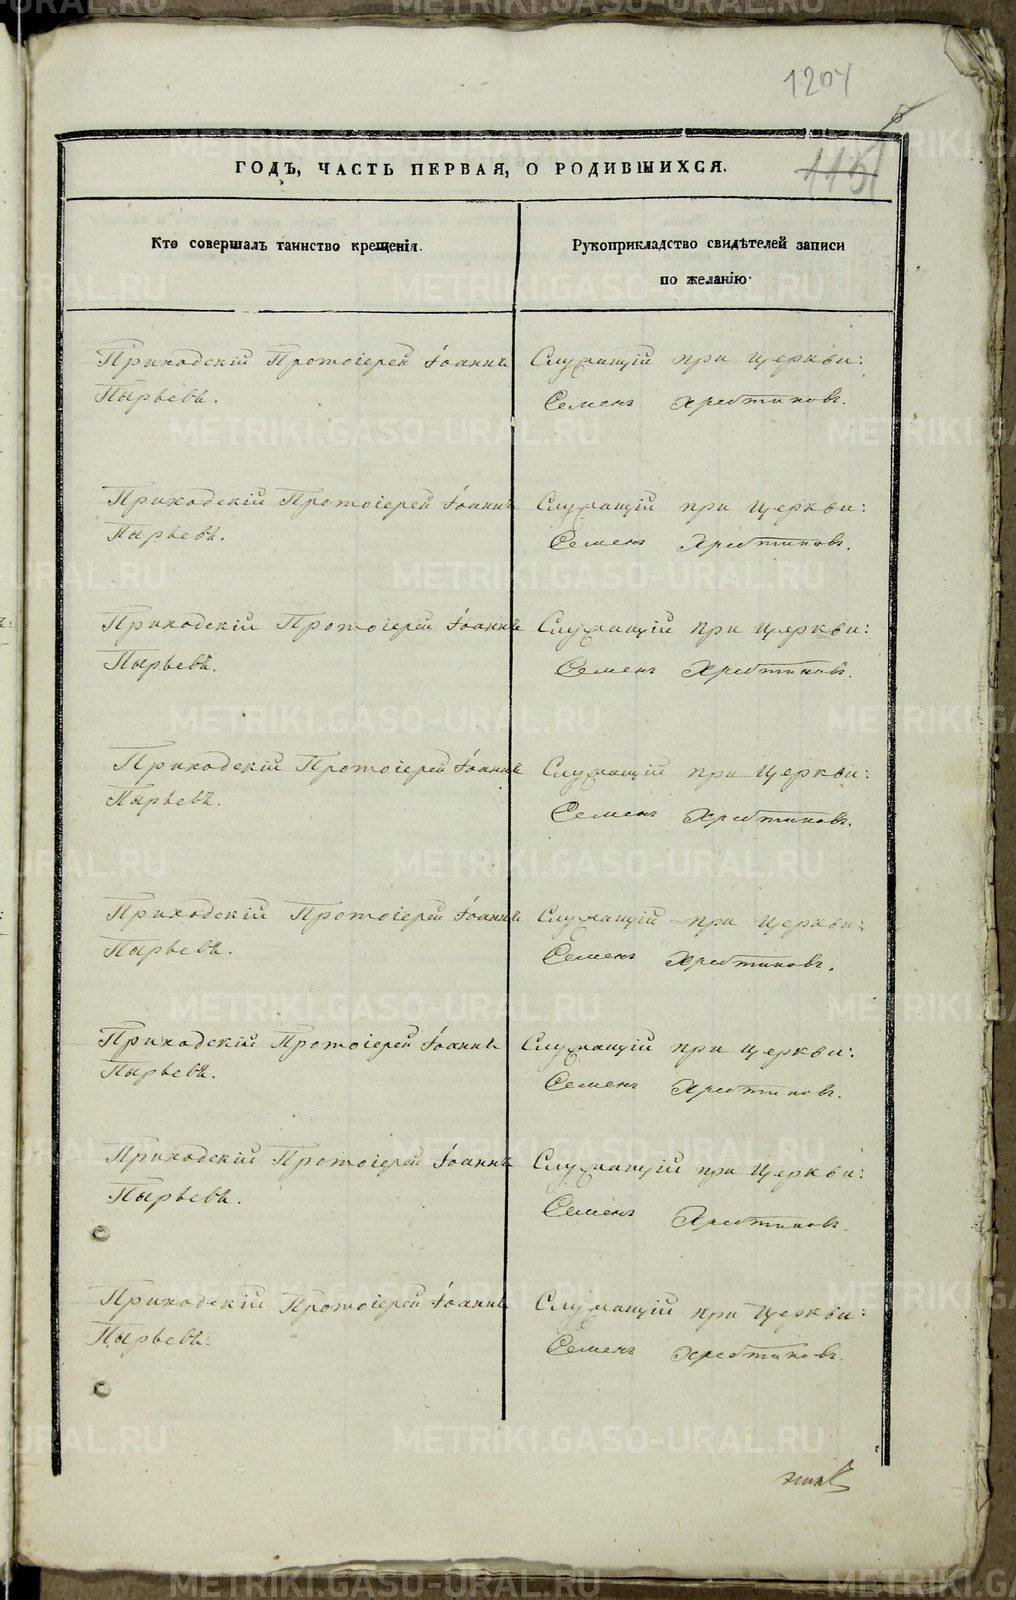 1204
115
ГОДЪ, ЧАСТЬ ПЕРВАЯ, О РОДИВШИХСЯ.
Кто совершалъ таинство крещенія.
Рукоприкладство свидѣтелей записи
по желанію
Приходскій Протоіерей Іоаннъ
Пырьевъ.
Служащій при церкви:
Семенъ Хребтиковъ.
Приходскій Протоіерей Іоаннъ
Пырьевъ.
Служащій при церкви:
Семенъ Хребтиковъ.
Приходскій Протоіерей Іоаннъ
Пырьевъ.
Служащій при церкви:
Семенъ Хребтиковъ.
Приходскій Протоіерей Іоаннъ
Пырьевъ.
Служащій при церкви:
Семенъ Хребтиковъ.
Приходскій Протоіерей Іоаннъ
Пырьевъ.
Служащій при церкви:
Семенъ Хребтиковъ.
Приходскій Протоіерей Іоаннъ
Пырьевъ.
Служащій при церкви:
Семенъ Хребтиковъ.
Приходскій Протоіерей Іоаннъ
Пырьевъ.
Служащій при церкви:
Семенъ Хребтиковъ.
Приходскій Протоіерей Іоаннъ
Пырьевъ.
Служащій при церкви:
Семенъ Хребтиковъ.
METRIKI.GASO-URAL.RU